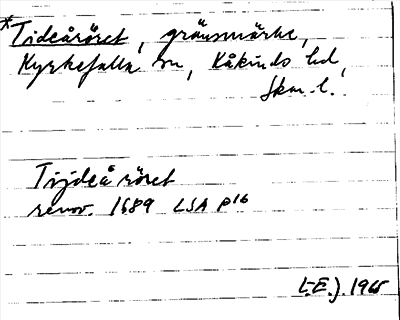 *Tideåröret, gränsmärke,
Kyrkefalla sn, Kåkinds hd,
Skar. l.
Tijdeå röret
renov. 1689 LSA P16
L.E.J. 1965